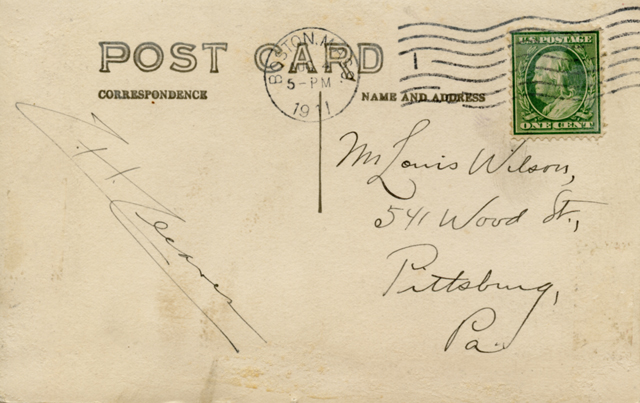 POST CARD
CORRESPONDENCE
NAME AND ADDRESS
BOSTON, MASS
5-PM
1911
1
U.S. POSTAGE
ONE CENT
Mr Louis Wilson,
541 Wood St.,
Pittsburg,
Pa.